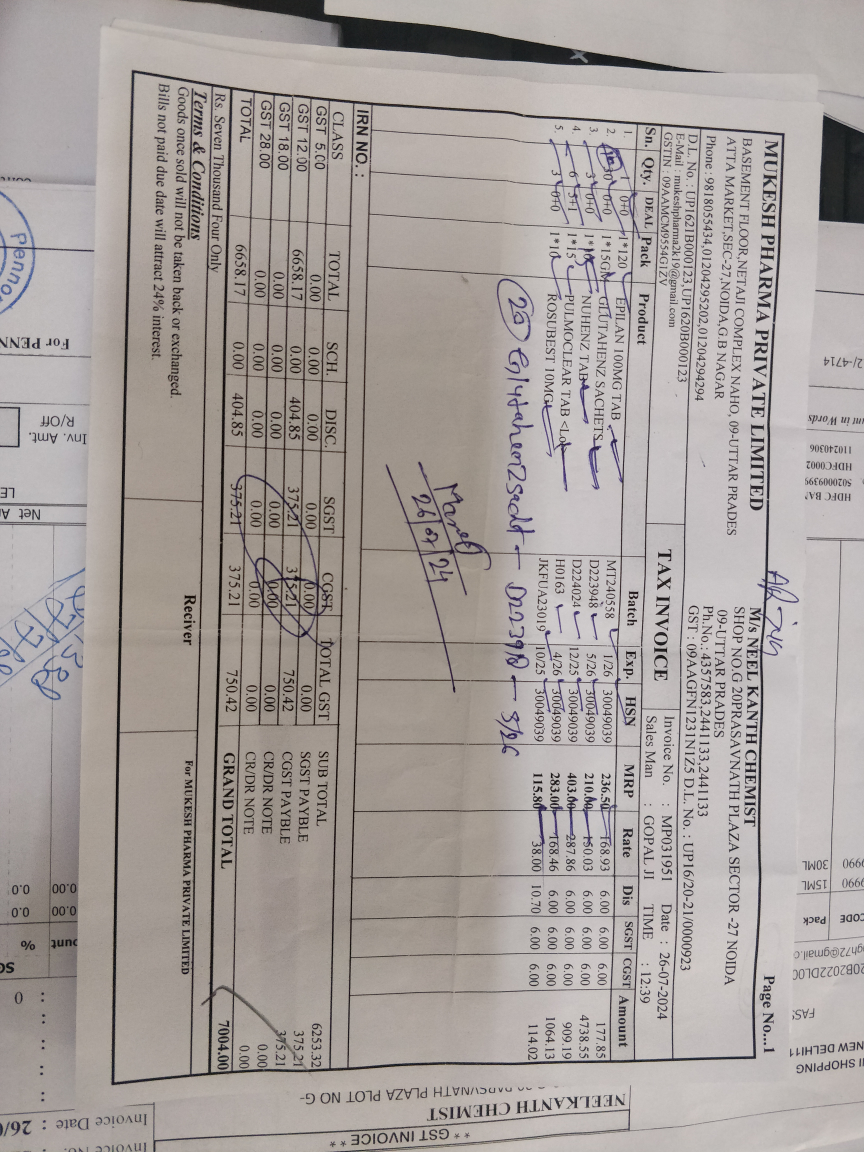 MUKESH PHARMA PRIVATE LIMITED
BASEMENT FLOOR,NETAJI COMPLEX NAHO, 09-UTTAR PRADES
ATTA MARKET,SEC-27,NOIDA,G.B NAGAR
Phone : 9818055434,01204295202,01204294294
D.L. No. : UP1621B000123,UP1620B000123
E-Mail : mukeshpharma2k19@gmail.com
GSTIN : 09AAMCM9554G1ZV
TAX INVOICE
Page No...1
M/s NEEL KANTH CHEMIST
SHOP NO.G 20PRASAVNATH PLAZA SECTOR -27 NOIDA
09-UTTAR PRADES
Ph.No.: 4357583,2441133,2441133
GST : 09AAGFN1231N1Z5 D.L. No. : UP16/20-21/0000923
Invoice No. : MP031951 Date : 26-07-2024
Sales Man : GOPAL JI TIME : 12:39
Sn. Qty. DEAL Pack Product Batch Exp. HSN MRP Rate Dis SGST CGST Amount
1. 1 0+0 1*120 EPILAN 100MG TAB MT240558 1/26 30049039 236.50 168.93 6.00 6.00 6.00 177.85
2. 30 0+0 1*15GM GLUTAHENZ SACHETS D223948 5/26 30049039 210.00 150.03 6.00 6.00 6.00 4738.55
3. 3 0+0 1*10 NUHENZ TAB D224024 12/25 30049039 403.00 287.86 6.00 6.00 6.00 909.19
4. 6 5+1 1*15 PULMOCLEAR TAB <Lo H0163 4/26 30049039 283.00 168.46 6.00 6.00 6.00 1064.13
5. 3 0+0 1*10 ROSUBEST 10MG JKFUA23019 10/25 30049039 115.80 38.00 10.70 6.00 6.00 114.02
26/07/24
IRN NO. :
CLASS TOTAL SCH. DISC. SGST CGST TOTAL GST
GST 5.00 0.00 0.00 0.00 0.00 0.00 0.00
GST 12.00 6658.17 0.00 404.85 375.21 375.21 750.42
GST 18.00 0.00 0.00 0.00 0.00 0.00 0.00
GST 28.00 0.00 0.00 0.00 0.00 0.00 0.00
TOTAL 6658.17 0.00 404.85 375.21 375.21 750.42
SUB TOTAL 6253.32
SGST PAYBLE 375.21
CGST PAYBLE 375.21
CR/DR NOTE 0.00
CR/DR NOTE 0.00
GRAND TOTAL 7004.00
Rs. Seven Thousand Four Only
Terms & Conditions
Goods once sold will not be taken back or exchanged.
Bills not paid due date will attract 24% interest.
Reciver
For MUKESH PHARMA PRIVATE LIMITED
** GST INVOICE **
NEELKANTH CHEMIST
Invoice Date :
For PENN
Inv. Amt.
R/Off